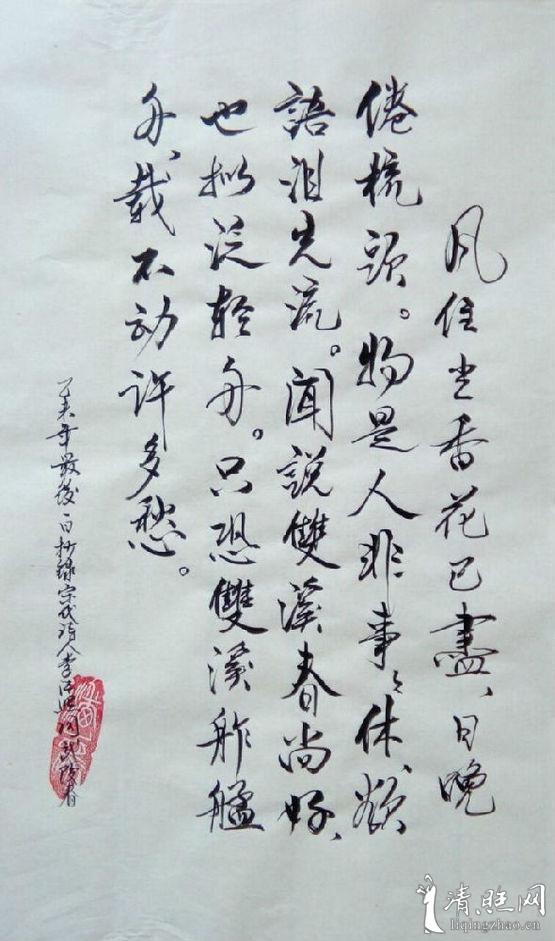 風住尘香花已盡、日晚
倦梳頭。物是人非事々休、欲
語泪先流。聞説雙溪春尚好、
也拟泛轻舟。只恐雙溪舴艋
舟、載不动许多愁。
乙未年最後一日抄録宋代诗人李清照词武陵春
清照网
liqingzhao.cn